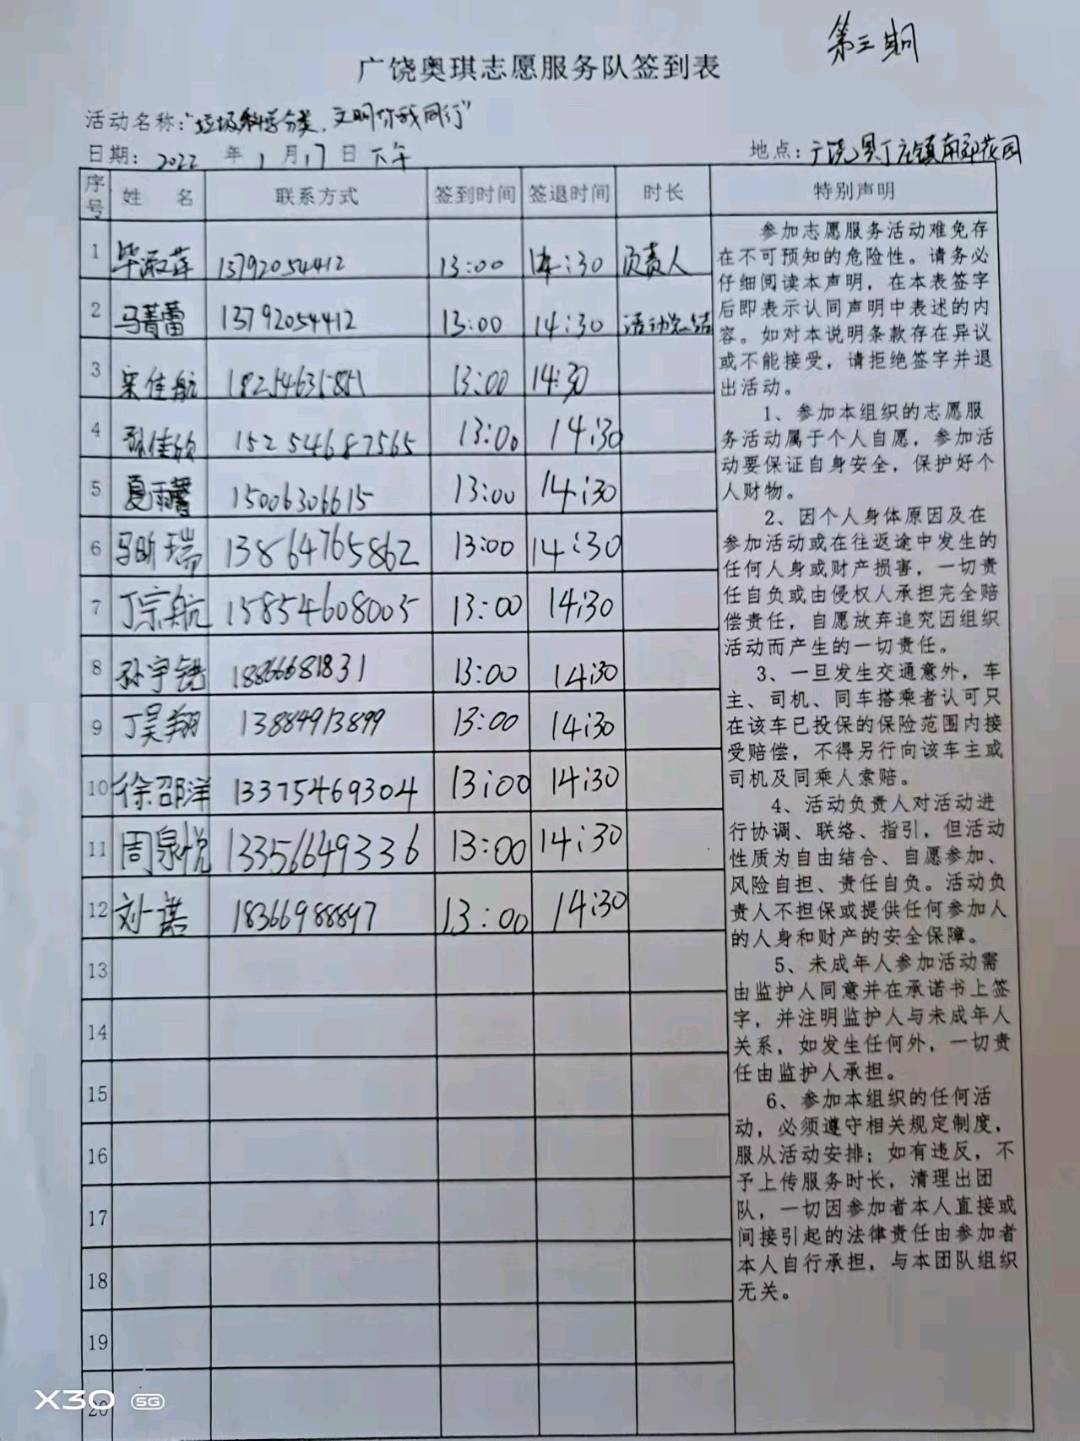 第三期
广饶奥琪志愿服务队签到表
活动名称:"垃圾科学分类,文明你我同行"
日期: 2022 年 1 月 17 日 下午
地点:广饶县丁庄镇南郊花园
序号 姓 名 联系方式 签到时间 签退时间 时长 特别声明
1 毕淑萍 13792054412 13:00 14:30 负责人
2 马菁蕾 13792054412 13:00 14:30 活动总结
3 宋佳航 13:00 14:30
4 孙佳欣 152 54687565 13:00 14:30
5 夏雨馨 15006306615 13:00 14:30
6 马昕瑞 13864765862 13:00 14:30
7 丁宗航 15854608005 13:00 14:30
8 孙宇 18866681831 13:00 14:30
9 丁昊翔 13884913899 13:00 14:30
10 徐邵洋 13375469304 13:00 14:30
11 周泉悦 13356649336 13:00 14:30
12 刘一诺 18366988897 13:00 14:30
13
14
15
16
17
18
19
20
参加志愿服务活动难免存
在不可预知的危险性。请务必
仔细阅读本声明,在本表签字
后即表示认同声明中表述的内
容。如对本说明条款存在异议
或不能接受,请拒绝签字并退
出活动。
1、参加本组织的志愿服
务活动属于个人自愿,参加活
动要保证自身安全,保护好个
人财物。
2、因个人身体原因及在
参加活动或在往返途中发生的
任何人身或财产损害,一切责
任自负或由侵权人承担完全赔
偿责任,自愿放弃追究因组织
活动而产生的一切责任。
3、一旦发生交通意外,车
主、司机、同车搭乘者认可只
在该车已投保的保险范围内接
受赔偿,不得另行向该车主或
司机及同乘人索赔。
4、活动负责人对活动进
行协调、联络、指引,但活动
性质为自由结合、自愿参加、
风险自担、责任自负。活动负
责人不担保或提供任何参加人
的人身和财产的安全保障。
5、未成年人参加活动需
由监护人同意并在承诺书上签
字,并注明监护人与未成年人
关系,如发生任何外,一切责
任由监护人承担。
6、参加本组织的任何活
动,必须遵守相关规定制度,
服从活动安排;如有违反,不
予上传服务时长,清理出团
队,一切因参加者本人直接或
间接引起的法律责任由参加者
本人自行承担,与本团队组织
无关。
X30 5G